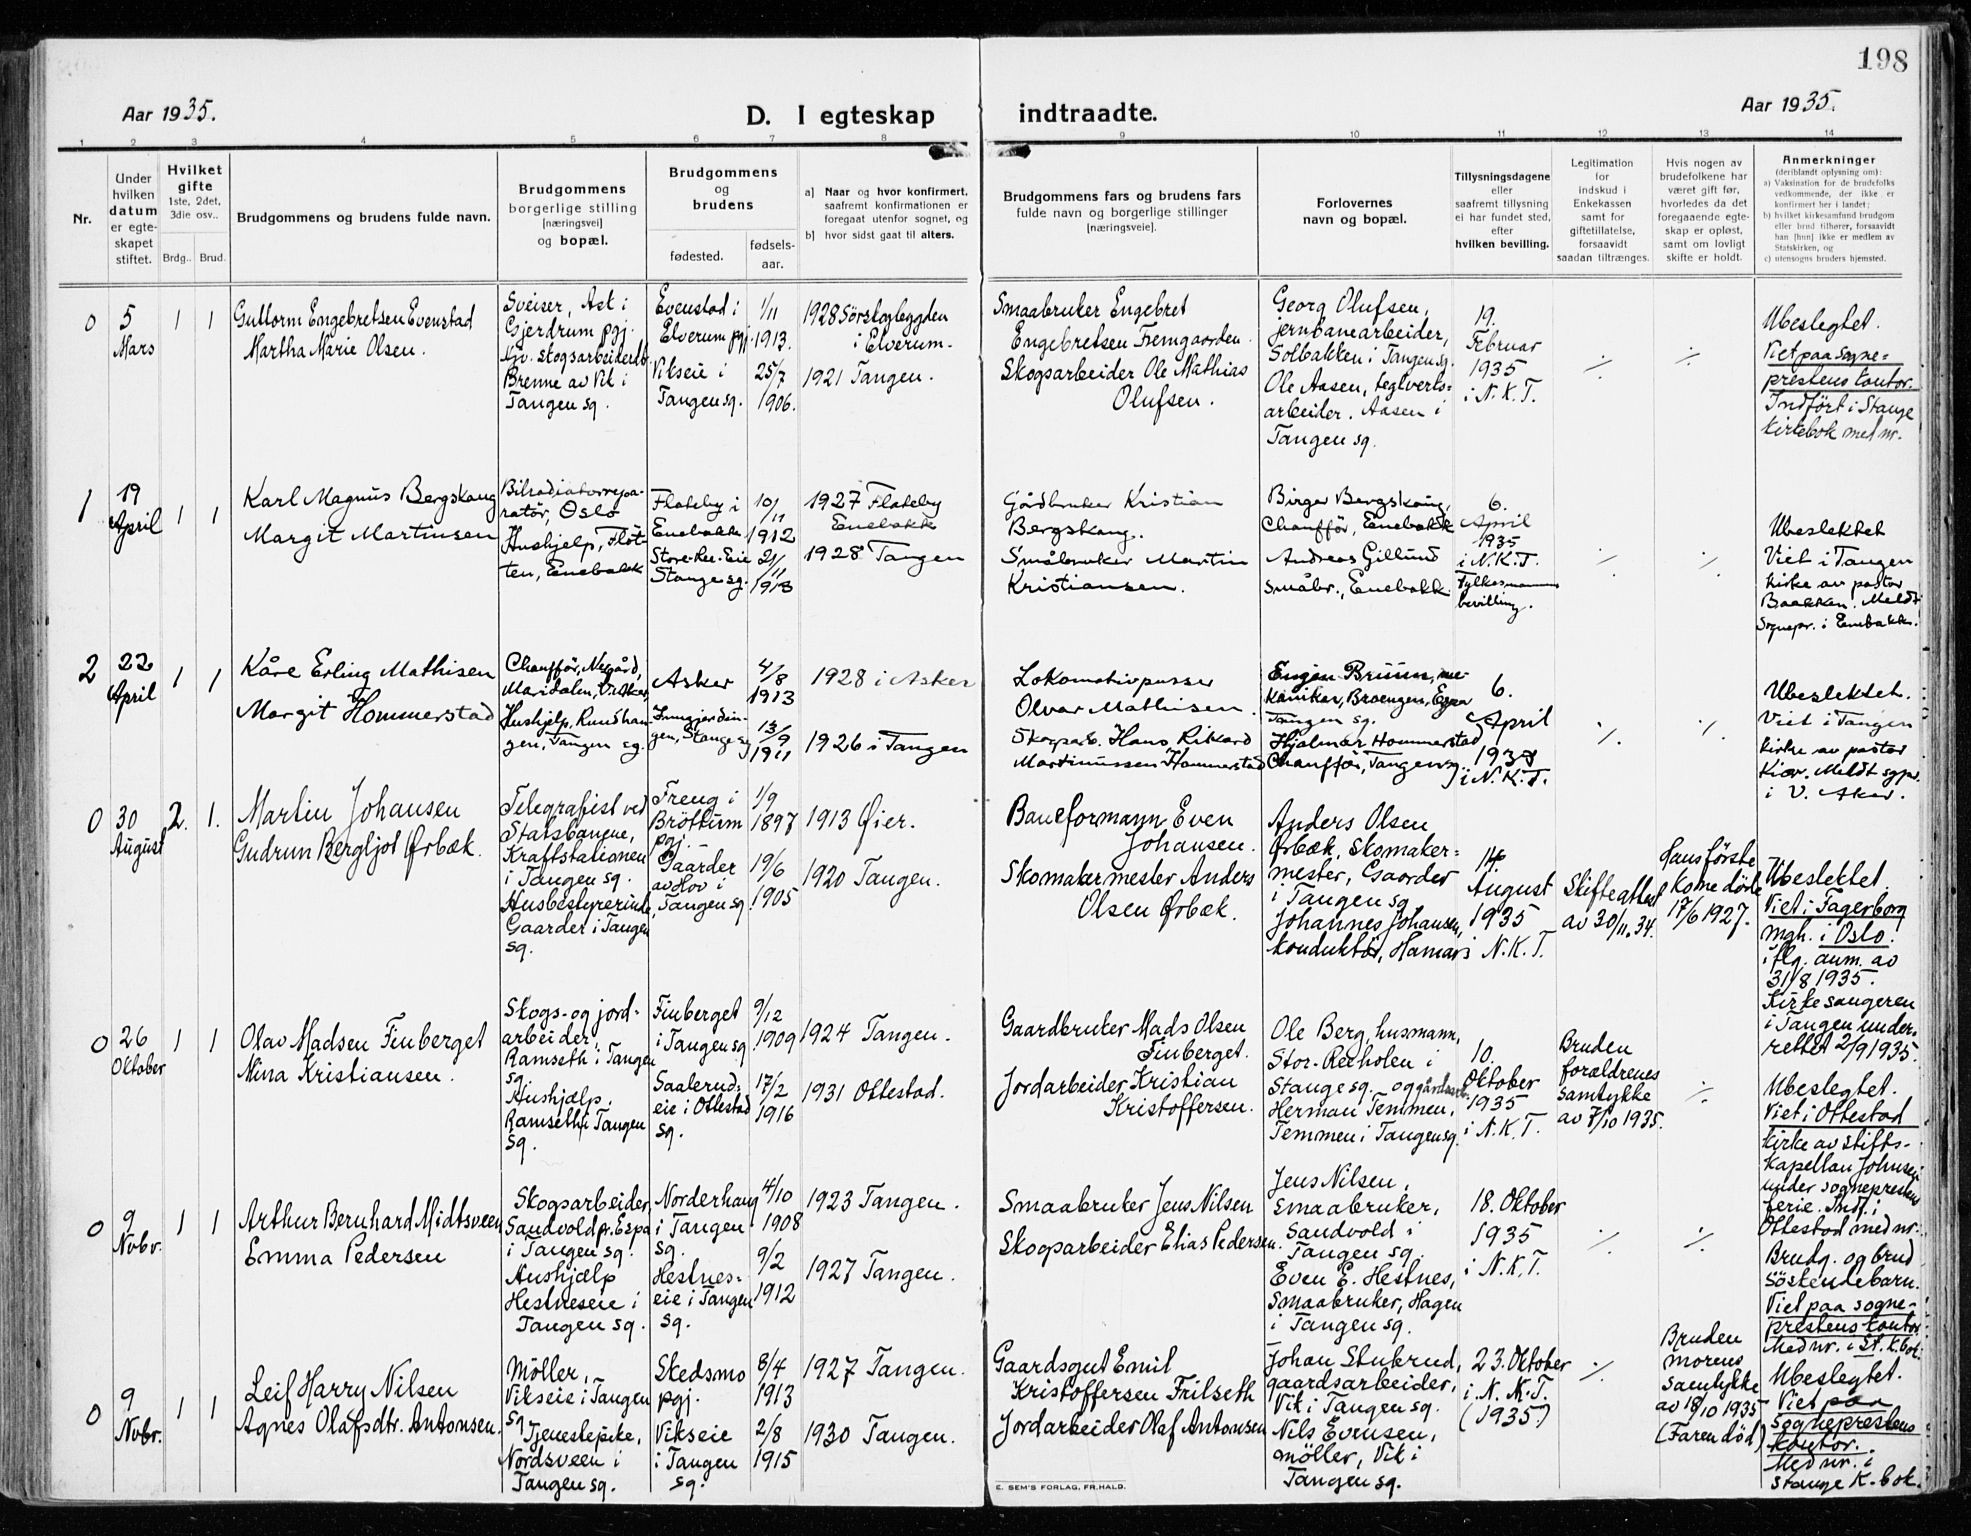 198
Aar 1935.
D. I egteskap indtraadte.
Aar 1935.
1 2 3 4 5 6 7 8 9 10 11 12 13 14
Nr.
Under
hvilken
datum
er egte-
skapet
stiftet.
Hvilket
gifte
1ste, 2det,
3die osv..
Brdg.. Brud.
Brudgommens og brudens fulde navn.
Brudgommens
borgerlige stilling
[næringsvei]
og bopæl.
Brudgommens
og
brudens
fødested.
fødsels-
aar.
a] Naar og hvor konfirmert,
saafremt konfirmationen er
foregaat utenfor sognet, og
b] hvor sidst gaat til alters.
Brudgommens fars og brudens fars
fulde navn og borgerlige stillinger
[næringsveie].
Forlovernes
navn og bopæl.
Tillysningsdagene
eller
saafremt tillysning
ei har fundet sted,
efter
hvilken bevilling.
Legitimation
for
indskud i
Enkekassen
samt for
giftetillatelse,
forsaavidt
saadan tiltrænges.
Hvis nogen av
brudefolkene har
været gift før,
hvorledes da det
foregaaende egte-
skap er opløst,
samt om lovligt
skifte er holdt.
Anmerkninger
(deriblandt oplysning om):
a) Vaksination for de brudefolks
vedkommende, der ikke er
konfirmert her i landet;
b) hvilket kirkesamfund brudgom
eller brud tilhører, forsaavidt
han [hun] ikke er medlem av
Statskirken, og
c) utensogns bruders hjemsted.
0
5
Mars
1 1
Gullorm Engebretsen Evenstad
Martha Marie Olsen.
Sveiser, Ask i
Gjerdrum pgj.
Brenne av Vik i
Tangen sg.
Evenstad i
Elverum pgj.
Vikseie i
Tangen sg.
1/11
1913.
25/7
1906.
1928 Sörskogbygden
i Elverum.
1921 Tangen.
Smaabruker Engebret
Engebretsen Fremgaarden.
Skogsarbeider Ole Mathias
Olufsen.
Georg Olufsen,
jernbanearbeider,
Solbakken i Tangen sg.
Ole Aasen, teglverks-
arbeider. Aasen i
Tangen sg.
19.
Februar
1935
i N. K. T.
./. ./.
Ubeslegtet.
Viet paa sogne-
prestens kontor.
Indført i Stange
kirkebok med nr.
1
19
April
1 1
Karl Magnus Bergskaug
Margit Martinsen
Bilradiatorrepa-
ratör, Oslo
Hushjelp, Flöt-
ten, Enebakk
Flateby i
Enebakk
Store-Ree-Eie
Stange sg.
10/11
1912
21/11
1913
1927 Flateby
Enebakk
1928 Tangen
Gårdbruker Kristian
Bergskaug.
Småbruker Martin
Kristiansen.
Birger Bergskaug,
Chauffør, Enebakk
Andreas Gillund
småbr., Enebakk
6.
April
1935
i N.K.T.
Fylkesmanns
bevilling.
./. ./.
Ubeslektet
Viet i Tangen
kirke av pastor
Baakken. Meldt
Sognepr. i Enebakk.
2
22
April
1 1
Kåre Erling Mathisen
Margit Hommerstad
Chauffør, Nygård,
Maridalen, V. Aker
Hushjelp, Rundhau-
gen, Tangen sg.
Asker
gen, Stange sg
4/8
1913
13/9
1911
1928 i Asker
1926 i Tangen
Lokomotivpusser
Olvar Mathisen.
Skogsarb. Hans Rikard
Martinussen Hommerstad
Eugen Bruun, me-
kaniker, Braengen, Espa
Tangen sg.
Hjalmar Hommerstad
Chauffør, Tangen sg.
6.
April
1935
i N.K.T.
./. ./.
Ubeslektet.
Viet i Tangen
kirke av pastor
Kiær. Meldt sgpr.
i V. Aker.
0
30
August
2. 1.
Martin Johansen
Gudrun Bergljot Ørbæk.
Telegrafist ved
Statsbanene,
Kraftstationen
i Tangen sg.
Husbestyrerinde,
Gaarder i Tangen
sg.
Freng i
Bröttum
pgj.
Gaarder
av Hov i
Tangen sg
1/9
1897
19/6
1905
1913 Øier.
1920 Tangen.
Baneformann Even
Johansen.
Skomakermester Anders
Olsen Ørbæk.
Anders Olsen
Ørbæk, skomaker-
mester, Gaarder
i Tangen sg.
Johannes Johansen,
konduktör, Hamar
14.
August
1935
i N.K.T.
Skifteattest
av 30/11.34.
Hans förste
kone döde
17/6 1927.
Ubeslektet.
Viet i Fagerborg
mgh. i Oslo.
iflg. anm. av
31/8 1935.
Kirkesangeren
i Tangen under-
rettet 2/9 1935.
0
26
Oktober
1 1
Olav Madsen Finberget
Nina Kristiansen.
Skogs- og jord-
arbeider,
Ramseth i Tangen
sg
Hushjælp.
Ramseth i Tangen
sg.
Finberget
i Tangen sg
Saalerud-
eie i Ottestad
sg.
9/12
1909
17/2
1916
1924 Tangen.
1931 Ottestad.
Gaardbruker Mads Olsen
Finberget.
Jordarbeider Kristian
Kristoffersen.
Ole Berg, husmann,
Stor-Reeholen i
Stange sg. og gårdsarb.
Herman Temmen,
Temmen i Tangen sg.
10.
Oktober
1935
i N.K.T.
Bruden
forældrenes
samtykke
av 7/10 1935.
./.
Ubeslegtet.
Viet i Ottestad
kirke av stifts-
kapellan Johnsen
under sogneprestens
ferie. Indf. i
Ottestad med nr.
0
9
Novbr.
1 1
Arthur Bernhard Midtsveen
Emma Pedersen
Skogsarbeider
Sandvold pr. Espa
i Tangen sg.
Hushjælp
Hestneseie i
Tangen sg.
Norderhaug
i Tangen
sg.
Hestnes-
eie i Tangen
sg.
4/10
1908
9/2
1912
1923 Tangen.
1927 Tangen.
Smaabruker Jens Nilsen
Skogsarbeider Elias Pedersen.
Jens Nilsen,
smaabruker,
Sandvold i
Tangen sg.
Even E. Hestnes,
smaabruker, Hagen
i Tangen sg.
18. Oktober
1935
i N.K.T.
./. ./.
Brudg. og brud
söskendebarn.
Viet paa sogne-
prestens kontor
Med nr. i St. k.bok.
0
9
Novbr.
1 1
Leif Harry Nilsen
Agnes Olafsdtr. Antonsen.
Möller,
Vikseie i Tangen
sg
Tjenestepike,
Nordsveen i
Tangen sg.
Skedsmo
pgj.
Vikseie
i Tangen
sg.
8/4
1913
2/8
1915
1927 Tangen.
1930 Tangen.
Gaardsgut Emil
Kristoffersen Frilseth
Jordarbeider Olaf Antonsen
Johan Stubrud,
gaardsarbeider,
Vik i Tangen sg.
Nils Evensen,
möller, Vik i
Tangen sg.
23. Oktober
i N. K. T.
(1935)
./.
Bruden
morens
samtykke
av 18/10 1935
(Faren död)
Ubeslegtet.
Viet paa
Sogneprestens
kontor.
Med nr. i
Stange K.bok.
E. SEM'S FORLAG, FR.HALD.